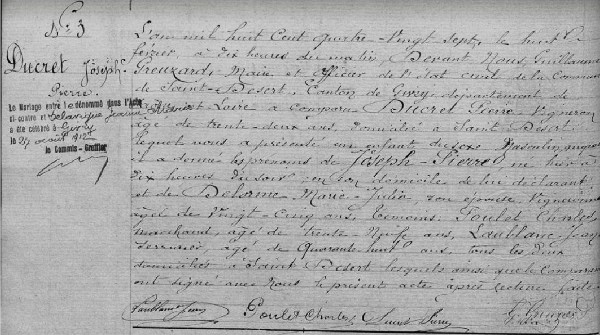 N° 3
Ducret Joseph
Pierre
Le Mariage entre le dénommé dans l'Acte
ci-contre et Jeanne
a été célébré à Givry
le 29 août 19
Le Commis-Greffier
L'an mil huit Cent Quatre-Vingt Sept, le huit
février, à dix heures du matin, Devant Nous, Guillaume
Greuzard, Maire et Officier de l'état civil de la Commune
de Saint-Désert, Canton de Givry, département de
et Loire, a Comparu Ducret Pierre, Vigneron
âgé de trente-deux ans, domicilié à Saint Désert
lequel nous a présenté un enfant du sexe Masculin auquel
il a donné les prénoms de Joseph-Pierre, né hier à
dix heures du soir en son domicile de lui déclarant
et de Delorme Marie-Julie, son épouse, Vigneronne
âgée de Vingt-Cinq ans, Témoins: Poulet Charles
marchand, âgé de trente-Neuf ans, Laublanc Jean
âgé de Quarante-huit ans, tous les deux
domiciliés à Saint Désert lesquels ainsi que le Comparant
ont signé avec Nous le présent acte après lecture faite
Laublanc Jean Poulet Charles Ducret Pierre G. Greuzard